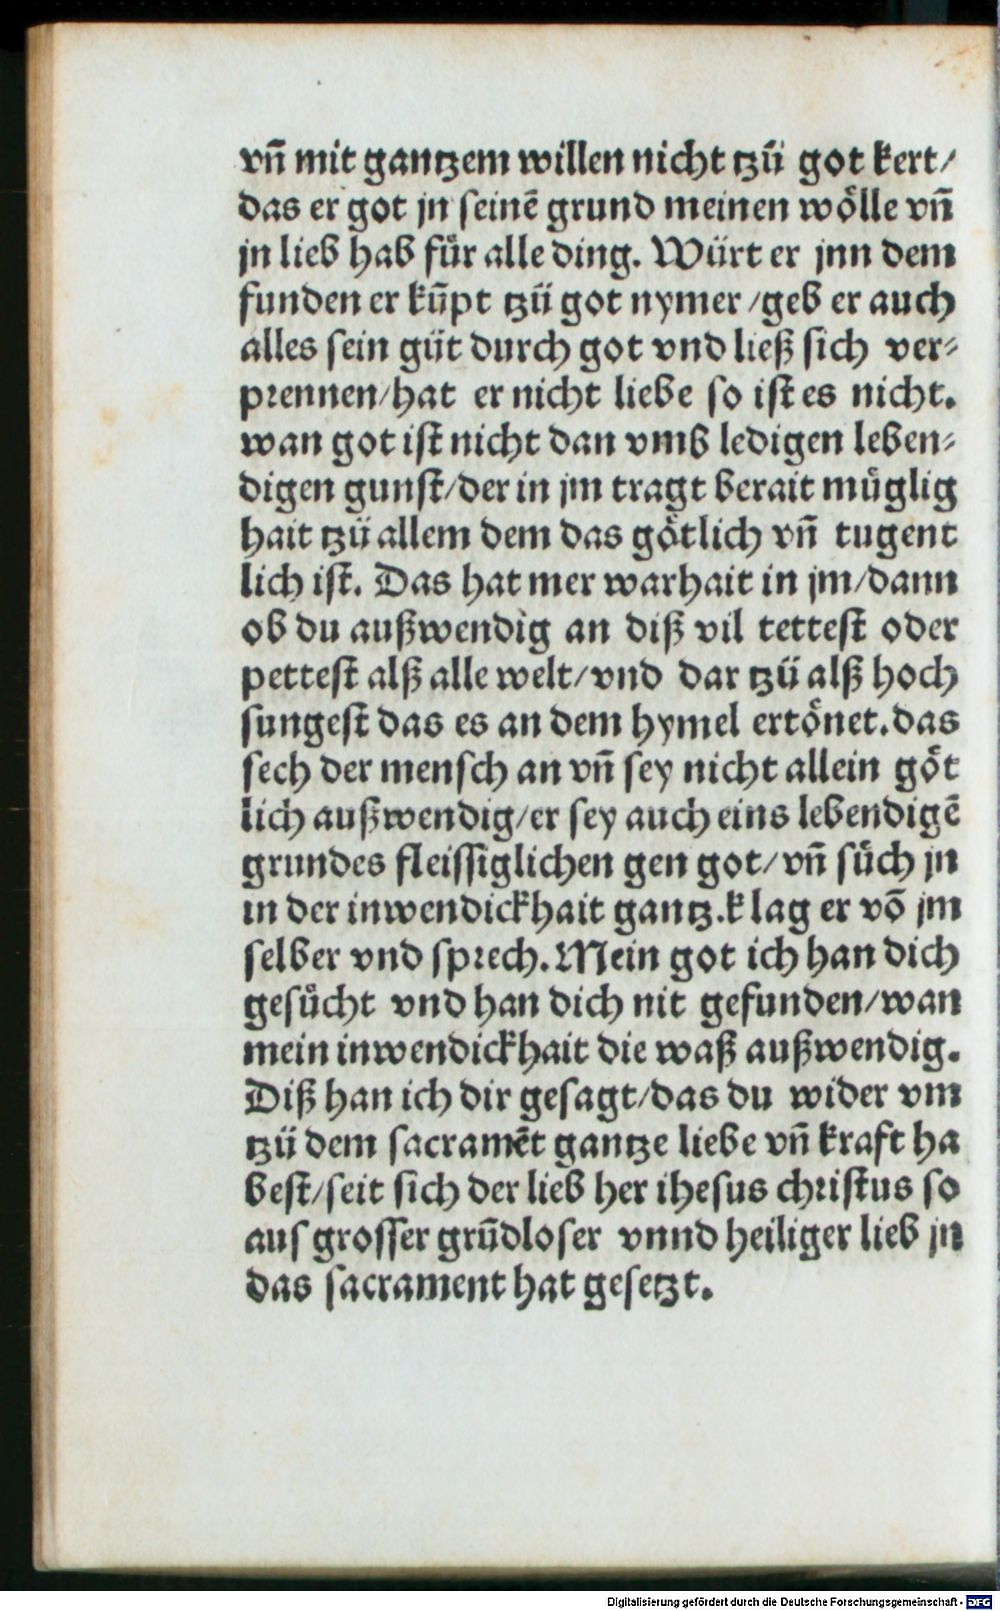 vn̄ mit gantzem willen nicht tzů got kert/
das er got jn seinē grund meinen wölle vn̄
jn lieb hab für alle ding. Würt er jnn dem
funden er kūpt tzů got nymer /geb er auch
alles sein gůt durch got vnd ließ sich ver⸗
prennen/hat er nicht liebe so ist es nicht.
wan got ist nicht dan vmb ledigen leben⸗
digen gunst/der in jm tragt berait müglig
hait tzů allem dem das götlich vn̄ tugent
lich ist. Das hat mer warhait in jm/dann
ob du außwendig an diß vil tettest oder
pettest alß alle welt/vnd dar tzů alß hoch
sungest das es an dem hymel ertönet.das
sech der mensch an vn̄ sey nicht allein göt
lich außwendig/er sey auch eins lebendigē
grundes fleissiglichen gen got/vn̄ sůch jn
in der inwendickhait gantz.klag er vō jm
selber vnd sprech. Mein got ich han dich
gesůcht vnd han dich nit gefunden/wan
mein inwendickhait die waß außwendig.
Diß han ich dir gesagt/das du wider vm
tzů dem sacramēt gantze liebe vn̄ kraft ha
best/seit sich der lieb her ihesus christus so
aus grosser grūdloser vnnd heiliger lieb jn
das sacrament hat gesetzt.
Digitalisierung gefördert durch die Deutsche Forschungsgemeinschaft - DFG